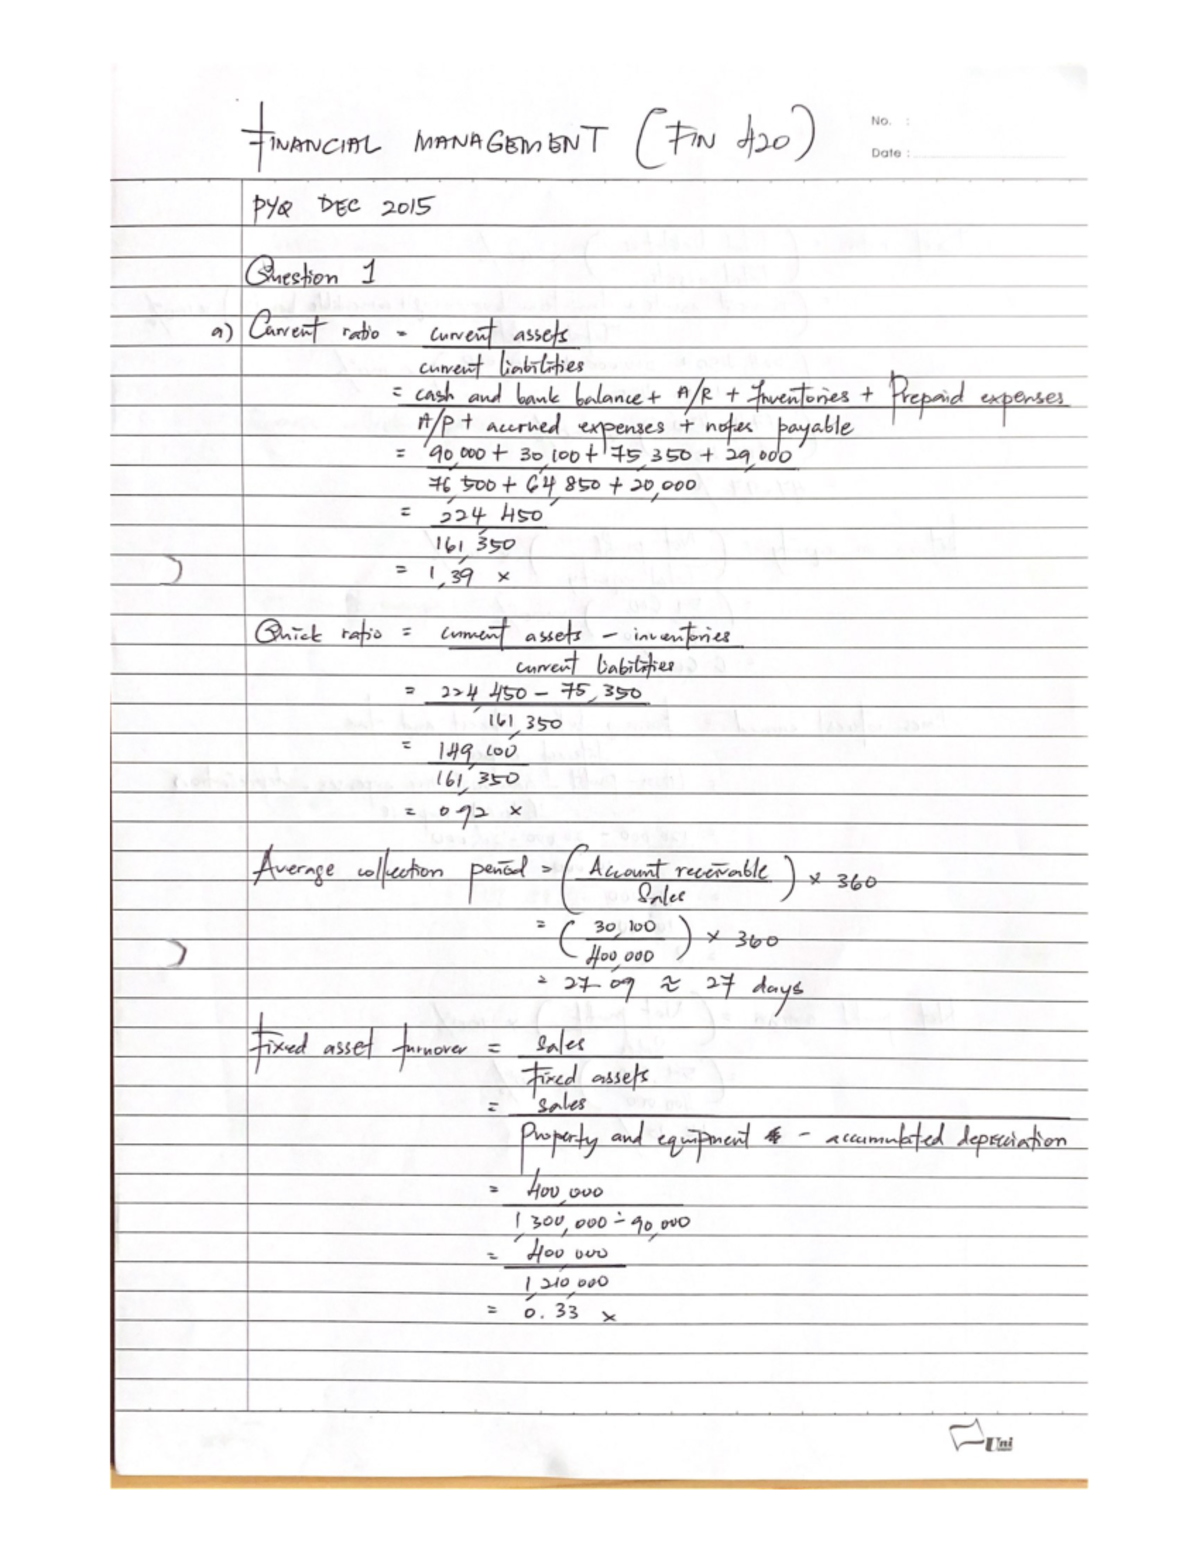 FINANCIAL MANAGEMENT (FIN 420)
No. :
Date :
PYQ DEC 2015
Question 1
a) Current ratio = current assets
current liabilities
= cash and bank balance + A/R + Inventories + Prepaid expenses
A/P + accrued expenses + notes payable
= 90,000 + 30,100 + 75,350 + 29,000
76,500 + 64,850 + 20,000
= 224,450
161,350
= 1,39 x
Quick ratio = current assets - inventories
current liabilities
= 224,450 - 75,350
161,350
= 149,100
161,350
= 0.92 x
Average collection period = (Account receivable) x 360
Sales
= (30,100) x 360
400,000
= 27.09 ≈ 27 days
Fixed asset turnover = Sales
Fixed assets
= Sales
Property and equipment - accumulated depreciation
= 400,000
1,300,000 - 90,000
= 400,000
1,210,000
= 0.33 x
Uni